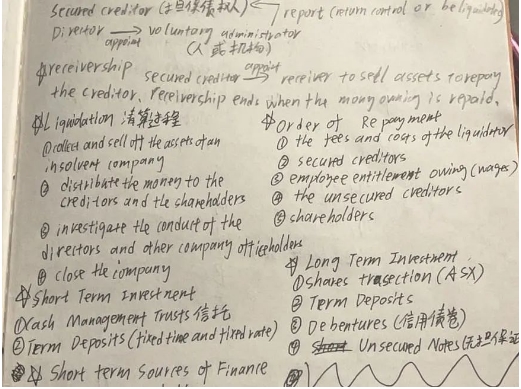 secured creditor (担保债权人) ← report (return control or be liquidating
Director → appoint voluntary administrator
(人或机构)
☆ receivership secured creditor → appoint receiver to sell assets to repay
the creditor. receivership ends when the mony owning is repaid.
☆ Liquidation 清算过程
① collect and sell off the assets of an
insolvent company
② distribute the money to the
creditors and the shareholders
③ investigate the conduct of the
directors and other company officeholders
④ close the company
☆ Short Term Investment
① Cash Management Trusts 信托
② Term Deposits (fixed time and fixed rate)
☆ Short term Sources of Finance
☆ Order of Repayment
① the fees and costs of the liquidator
② secured creditors
③ employee entitlement owing (wages)
④ the unsecured creditors
⑤ shareholders
☆ Long Term Investment
① shares trasection (ASX)
② Term Deposits
③ Debentures (信用债卷)
④ Unsecured Notes (无担保证